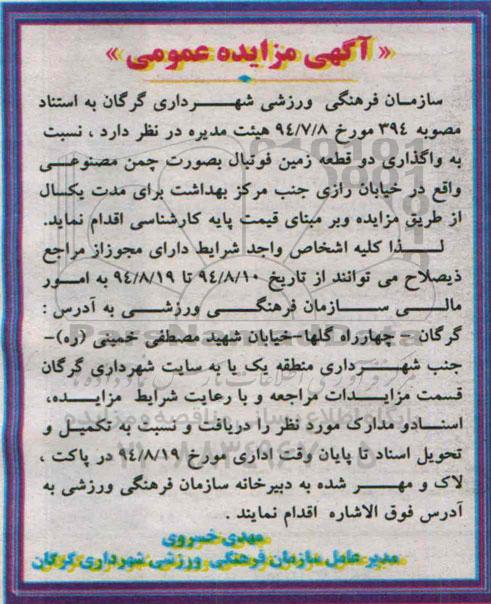 « آگهی مزایده عمومی »
سازمان فرهنگی ورزشی شهرداری گرگان به استناد
مصوبه ۳۹۴ مورخ ۹۴/۷/۸ هیئت مدیره در نظر دارد ، نسبت
به واگذاری دو قطعه زمین فوتبال بصورت چمن مصنوعی
واقع در خیابان رازی جنب مرکز بهداشت برای مدت یکسال
از طریق مزایده وبر مبنای قیمت پایه کارشناسی اقدام نماید.
لذا کلیه اشخاص واجد شرایط دارای مجوزاز مراجع
ذیصلاح می توانند از تاریخ ۹۴/۸/۱۰ تا ۹۴/۸/۱۹ به امور
مالی سازمان فرهنگی ورزشی به آدرس :
گرگان - چهارراه گلها -خیابان شهید مصطفی خمینی (ره)-
جنب شهرداری منطقه یک یا به سایت شهرداری گرگان
قسمت مزایدات مراجعه و با رعایت شرایط مزایده،
اسنادو مدارک مورد نظر را دریافت و نسبت به تکمیل و
تحویل اسناد تا پایان وقت اداری مورخ ۹۴/۸/۱۹ در پاکت ،
لاک و مهر شده به دبیرخانه سازمان فرهنگی ورزشی به
آدرس فوق الاشاره اقدام نمایند .
مهدی خسروی
مدیرعامل سازمان فرهنگی ورزشی شهرداری گرگان
ParsNamadData